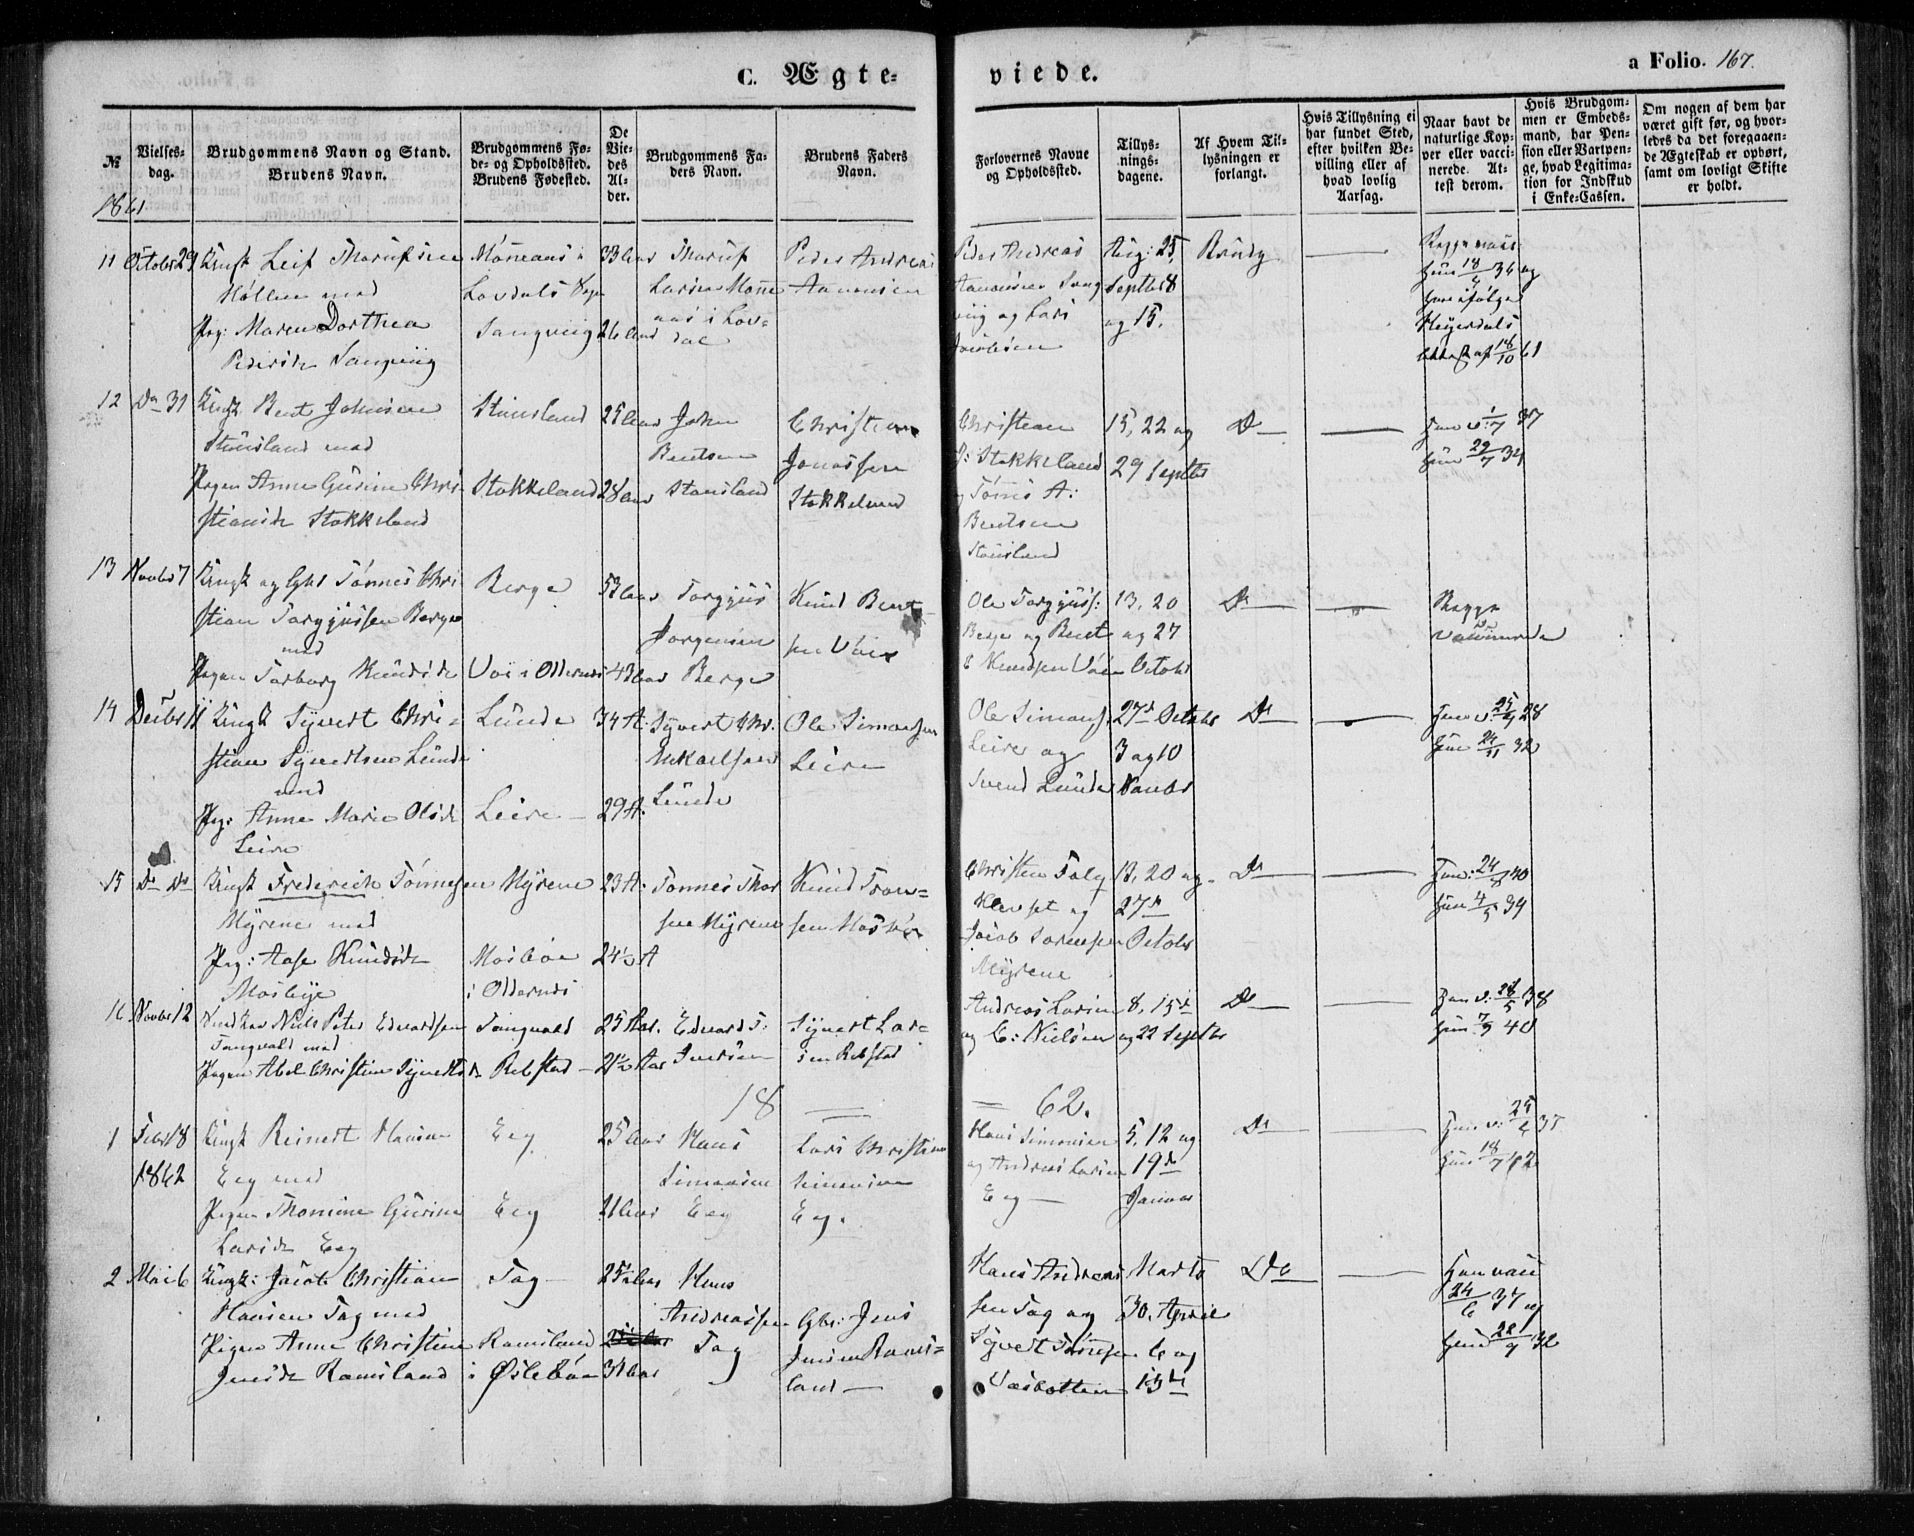 C. Ægte-
viede.
a Folio. 167.
№
Vielses-
dag.
Brudgommens Navn og Stand.
Brudens Navn.
Brudgommens Fø-
de- og Opholdssted.
Brudens Fødested.
De
Vie-
des
Al-
der.
Brudgommens Fa-
ders Navn.
Brudens Faders
Navn.
Forlovernes Navne
og Opholdssted.
Tillys-
nings-
dagene.
Af Hvem Til-
lysningen er
forlangt.
Hvis Tillysning ei
har fundet Sted,
efter hvilken Be-
villing eller af
hvad lovlig
Aarsag.
Naar havt de
naturlige Kop-
per eller vacci-
nerede. At-
test derom.
Hvis Brudgom-
men er Embeds-
mand, har Pen-
sion eller Vartpen-
ge, hvad Legitima-
tion for Indskud
i Enke-Cassen.
Om nogen af dem har
været gift før, og hvor-
ledes da det foregaaen-
de Ægteskab er ophørt,
samt om lovligt Skifte
er holdt.
1861
11 October 29 Ungk Leif
Høllen med
Pig: Maren Dorthea
Pedersdr Langviig
Langviig
33 Aar
26 Aar
Peder Andreas
Aanonsen
Peder Andreas
og Lars
Jacobsen
Aug: 25,
Septbr 8
og 15.
Brudg
12 Do 31 Ungk Bent Johnsen
Stausland med
Pigen Anne Gurine Chri-
stiansdr Stokkeland
Stausland
Stokkeland
25 Aar
28 Aar
John
Bentsen
Stausland
Christian
Jonassen
Stokkeland
Christian
J: Stokkeland
og Tønnes A:
Bentsen
Stausland
15, 22 og
29 Septbr
Do
Han v: 1/7 37
Hun 29/7 34
13 Novbr 7 Ungk og Gbr Tønnes Chri-
stian Torgjussen Berge
med
Pigen Torborg Knudsdr
Berge
Voie i Oddernes
53 Aar
43 Aar
Torgjus
Jørgensen
Berge
Knud Bent-
sen Voie
Ole Torgjuss:
Berge og Bent
Knudsen Voie
13, 20
og 27
Octobr
Do
Begge
vaccinerede
14 Decbr 11 Ungk Syvert Chri-
stian Syvertsen Lunde
med
Pig: Anne Marie Olsdr
Leire
Lunde
Leire
34 A:
29 A:
Syvert Chr.
Mikaelsen
Lunde
Ole Simonsen
Leire
Ole Simons:
Leire og
Svend Lunde
27de Octobr
3 og 10
Novbr
Do
Hun 24/11 32
15 Do Do Ungk Frederich Tønnesen
Myrene med
Pig: Aase Knudsdr
Mosbye
Myrene
Mosbøe
i Oddernes
23 A:
24½ A
Tønnes Thor
sen Myrene
Christen
og
Jacob Sørensen
Myrene
13, 20 og
27de
Octobr
Do
Han: 24/8 40
Hun 4/5 39
16 Novbr 12 Niels Peter Edvardsen
Tangvald med
Pigen Abel Christine Syvertsdr
Tangvald
Rebstad
25 Aar.
21½ Aar
Edvard T:
Iversen
Syvert Lar-
sen Rebstad
Andreas Larsen
og C: Nielsen
8, 15de
og 22 Septbr
Do
Han v: 28/5 38
Hun 7/9 40
18 — — 62.
1 Febr 18
1862
Ungk Reinert Hansen
Eeg med
Pigen Thomine Gurine
Larsdr Eeg
Eeg
Eeg
25 Aar
21 Aar
Hans
Simonsen
Eeg
Lars Christian
Simonsen
Eeg.
Hans Simonsen
og Andreas Larsen
Eeg
5, 12 og
19de
Januar
Do
Han v: 25/6 35
2 Mai 6 Ungk: Jacob Christian
Hansen Tag med
Pigen Anne Christine
Jensdr Ramsland
Tag
Ramsland
i Øslebøe
25 Aar
31 Aar
Hans
Andreassen
Tag
Gbr: Jens
Jensen Rams-
land
Hans Andreas
sen Tag og
Syvert Tønnesen
Marts
30. April
6 og
13de
Do
Han vacc
24/6 37 og
Hun 22/9 32